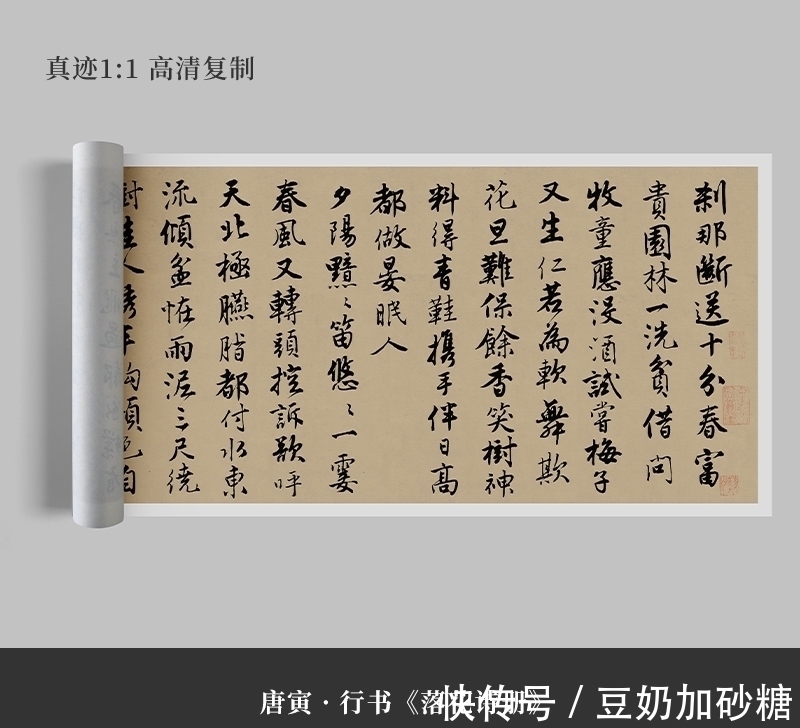 真迹1:1 高清复制
刹那斷送十分春富
貴園林一洗貧借問
牧童應没酒試嘗梅子
又生仁若為軟舞欺
花旦難保餘香笑樹神
料得青鞋攜手伴日高
都做晏眠人
夕陽黯〻笛悠〻一霎
春風又轉頭控訴欲呼
天北極臙脂都付水東
流傾盆怪雨泥三尺繞
樹佳人綉半鈎顏色自
唐寅 · 行书《落花诗册》
快传号 / 豆奶加砂糖